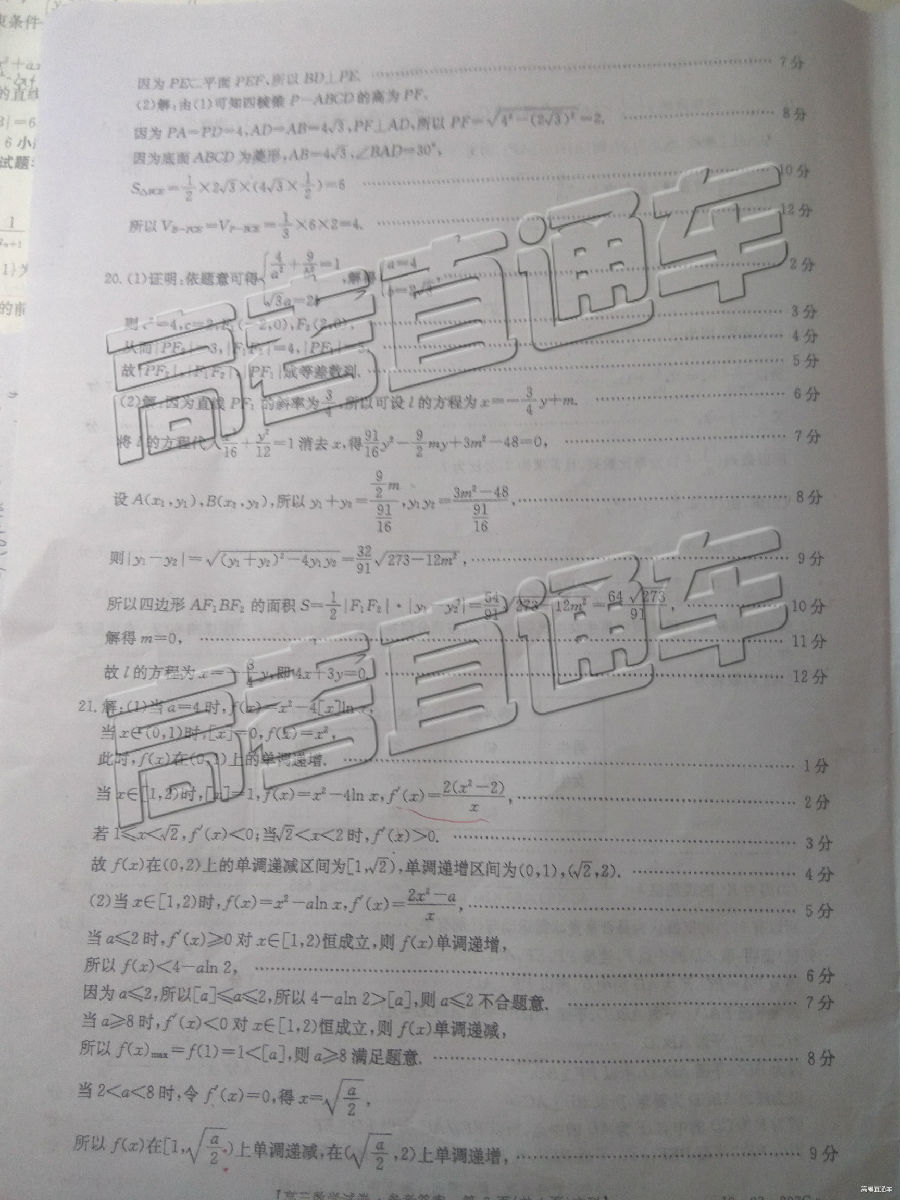 因为PE⊂平面PEF,所以BD⊥PE. 7分
(2)解:由(1)可知四棱锥P-ABCD的高为PF.
因为PA=PD=4,AD=AB=4√3,PF⊥AD,所以PF=√(4²-(2√3)²)=2. 8分
因为底面ABCD为菱形,AB=4√3,∠BAD=30°,
S△BCE=1/2×2√3×(4√3×1/2)=6 10分
所以V_{B-PCE}=V_{P-BCE}=1/3×6×2=4. 12分
20.(1)证明:依题意可得{4/a²+9/b²=1, √3a=2b, 解得{a=4, b=2√3, 2分
则c²=4,c=2,F₁(-2,0),F₂(2,0), 3分
从而|PF₂|=3,|F₁F₂|=4,|PF₁|=5, 4分
故|PF₂|,|F₁F₂|,|PF₁|成等差数列. 5分
(2)解:因为直线PF₁的斜率为3/4,所以可设l的方程为x=-3/4y+m. 6分
将l的方程代入x²/16+y²/12=1消去x,得91/16y²-9/2my+3m²-48=0, 7分
设A(x₁,y₁),B(x₂,y₂),所以y₁+y₂=(9/2m)/(91/16),y₁y₂=(3m²-48)/(91/16), 8分
则|y₁-y₂|=√((y₁+y₂)²-4y₁y₂)=32/91√(273-12m²), 9分
所以四边形AF₁BF₂的面积S=1/2|F₁F₂|·|y₁-y₂|=64/91√(273-12m²)=64√273/91, 10分
解得m=0, 11分
故l的方程为x=-3/4y,即4x+3y=0. 12分
21.解:(1)当a=4时,f(x)=x²-4[x]ln x,
当x∈(0,1)时,[x]=0,f(x)=x²,
此时,f(x)在(0,1)上的单调递增. 1分
当x∈[1,2)时,[x]=1,f(x)=x²-4ln x,f′(x)=2(x²-2)/x, 2分
若1≤x<√2,f′(x)<0;当√2<x<2时,f′(x)>0. 3分
故f(x)在(0,2)上的单调递减区间为[1,√2),单调递增区间为(0,1),(√2,2). 4分
(2)当x∈[1,2)时,f(x)=x²-aln x,f′(x)=(2x²-a)/x, 5分
当a≤2时,f′(x)≥0对x∈[1,2)恒成立,则f(x)单调递增,
所以f(x)<4-aln 2, 6分
因为a≤2,所以[a]≤a≤2,所以4-aln 2>[a],则a≤2不合题意. 7分
当a≥8时,f′(x)<0对x∈[1,2)恒成立,则f(x)单调递减,
所以f(x)max=f(1)=1<[a],则a≥8满足题意. 8分
当2<a<8时,令f′(x)=0,得x=√(a/2),
所以f(x)在[1,√(a/2))上单调递减,在(√(a/2),2)上单调递增, 9分
高考直通车
高考直通车
高考直通车